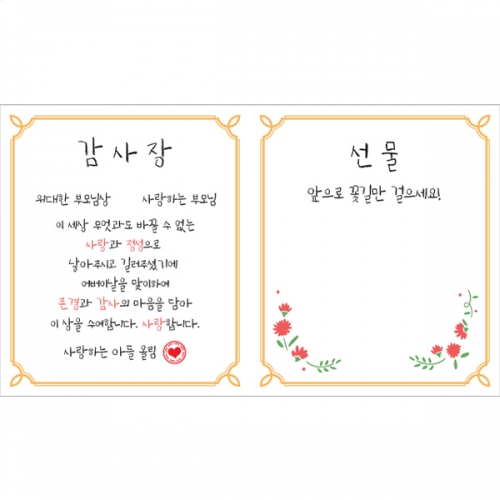 감사장
위대한 부모님상 사랑하는 부모님
이 세상 무엇과도 바꿀 수 없는
사랑과 정성으로
낳아주시고 길러주셨기에
어버이날을 맞이하여
존경과 감사의 마음을 담아
이 상을 수여합니다. 사랑합니다.
사랑하는 아들 올림
선물
앞으로 꽃길만 걸으세요!